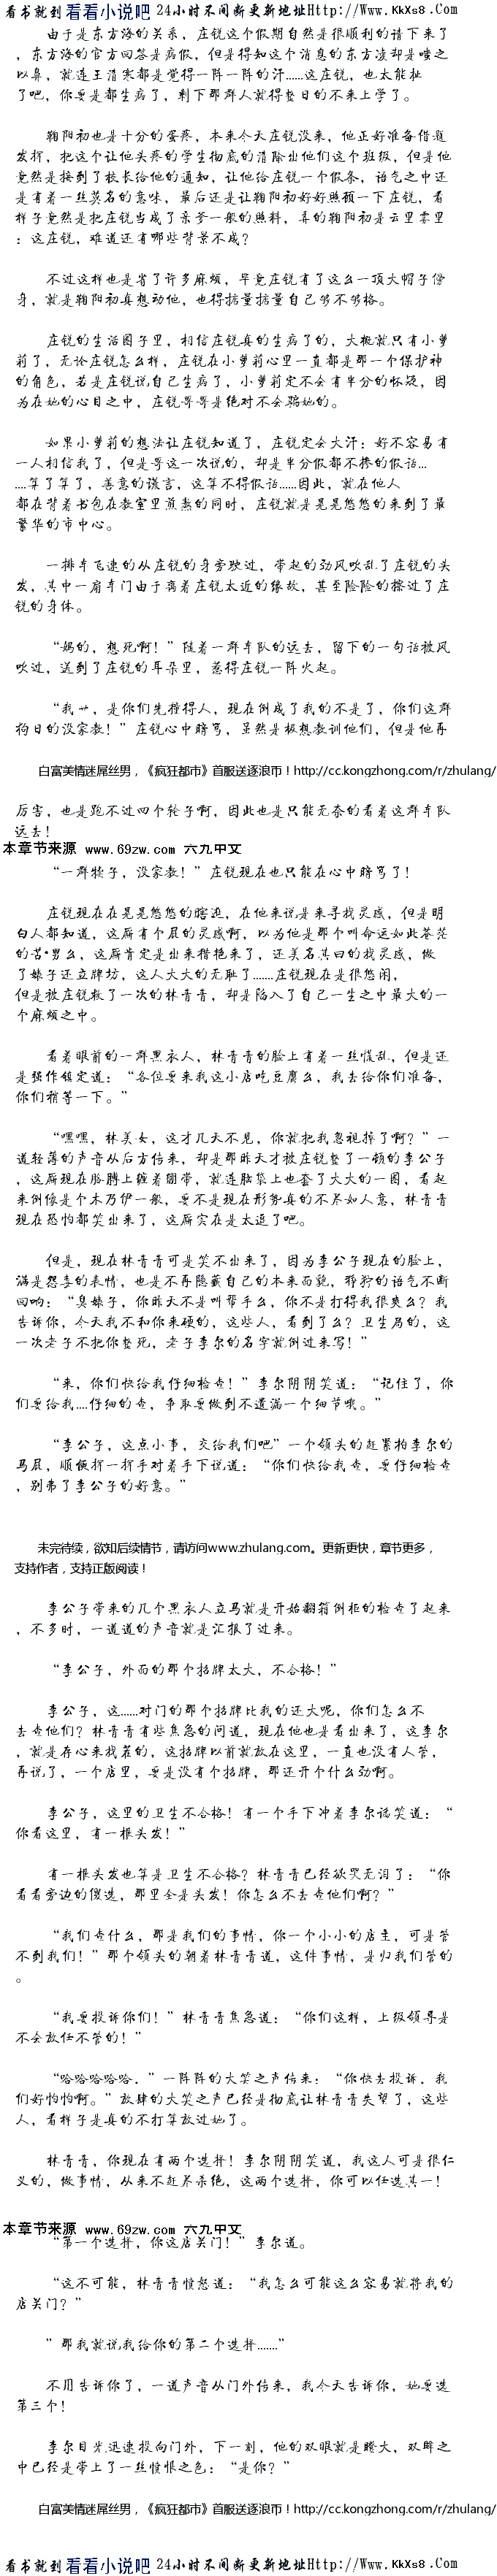 看书就到看看小说吧 24小时不间断更新地址Http://Www.KkXs8.Com
由于是东方海的关系，庄锐这个假期自然是很顺利的请下来了
，东方海的官方回答是病假，但是得知这个消息的东方凌却是嗤之
以鼻，就连王清寒都是觉得一阵一阵的汗……这庄锐，也太能扯
了吧，你要是都生病了，剩下那群人就得整日的不来上学了。
鞠阳初也是十分的蛋疼，本来今天庄锐没来，他正好准备借题
发挥，把这个让他头疼的学生彻底的清除出他们这个班级，但是他
竟然是接到了校长给他的通知，让他给庄锐一个假条，语气之中还
是有着一丝莫名的意味，最后还是让鞠阳初好好照顾一下庄锐，看
样子竟然是把庄锐当成了亲爹一般的照料，弄的鞠阳初是云里雾里
：这庄锐，难道还有哪些背景不成？
不过这样也是省了许多麻烦，毕竟庄锐有了这么一顶大帽子傍
身，就是鞠阳初真想动他，也得掂量掂量自己够不够格。
庄锐的生活圈子里，相信庄锐真的生病了的，大概就只有小萝
莉了，无论庄锐怎么样，庄锐在小萝莉心里一直都是那一个保护神
的角色，若是庄锐说自己生病了，小萝莉定不会有半分的怀疑，因
为在她的心目之中，庄锐哥哥是绝对不会骗她的。
如果小萝莉的想法让庄锐知道了，庄锐定会大汗：好不容易有
一人相信我了，但是哥这一次说的，却是半分假都不掺的假话…
…算了算了，善意的谎言，这算不得假话……因此，就在他人
都在背着书包在教室里煎熬的同时，庄锐就是晃晃悠悠的来到了最
繁华的市中心。
一排车飞速的从庄锐的身旁驶过，带起的劲风吹乱了庄锐的头
发，其中一扇车门由于离着庄锐太近的缘故，甚至险险的擦过了庄
锐的身体。
“妈的，想死啊！”随着一群车队的远去，留下的一句话被风
吹过，送到了庄锐的耳朵里，惹得庄锐一阵火起。
“我艹，是你们先撞得人，现在倒成了我的不是了，你们这群
狗日的没家教！”庄锐心中暗骂，虽然是极想教训他们，但是他再
白富美情迷屌丝男，《疯狂都市》首服送逐浪币！http://cc.kongzhong.com/r/zhulang/
厉害，也是跑不过四个轮子啊，因此也是只能无奈的看着这群车队
远去！
本章节来源 www.69zw.com 六九中文
“一群犊子，没家教！”庄锐现在也只能在心中暗骂了！
庄锐现在在晃晃悠悠的瞎逛，在他来说是来寻找灵感，但是明
白人都知道，这厮有个屁的灵感啊，以为他是那个叫命运如此苍茫
的苦·男么，这厮肯定是出来揩艳来了，还美名其曰的找灵感，做
了婊子还立牌坊，这人大大的无耻了……庄锐现在是很悠闲，
但是被庄锐救了一次的林青青，却是陷入了自己一生之中最大的一
个麻烦之中。
看着眼前的一群黑衣人，林青青的脸上有着一丝慌乱，但是还
是强作镇定道：“各位要来我这小店吃豆腐么，我去给你们准备，
你们稍等一下。”
“嘿嘿，林美女，这才几天不见，你就把我忽视掉了啊？”一
道轻薄的声音从后方传来，却是那昨天才被庄锐整了一顿的李公子
，这厮现在胳膊上缠着绷带，就连脑袋上也套了大大的一圈，看起
来倒像是个木乃伊一般，要不是现在形势真的不尽如人意，林青青
现在恐怕都笑出来了，这厮实在是太逗了吧。
但是，现在林青青可是笑不出来了，因为李公子现在的脸上，
满是怨毒的表情，也是不再隐藏自己的本来面貌，狰狞的语气不断
回响：“臭婊子，你昨天不是叫帮手么，你不是打得我很爽么？我
告诉你，今天我不和你来硬的，这些人，看到了么？卫生局的，这
一次老子不把你整死，老子李尔的名字就倒过来写！”
“来，你们快给我仔细检查！”李尔阴阴笑道：“记住了，你
们要给我…仔细的查，争取要做到不遗漏一个细节哦。”
“李公子，这点小事，交给我们吧”一个领头的赶紧拍李尔的
马屁，顺便挥一挥手对着手下说道：“你们快给我查，要仔细检查
，别弗了李公子的好意。”
未完待续，欲知后续情节，请访问www.zhulang.com。更新更快，章节更多，
支持作者，支持正版阅读！
李公子带来的几个黑衣人立马就是开始翻箱倒柜的检查了起来
，不多时，一道道的声音就是汇报了过来。
“李公子，外面的那个招牌太大，不合格！”
李公子，这……对门的那个招牌比我的还大呢，你们怎么不
去查他们？林青青有些焦急的问道，现在他也是看出来了，这李尔
，就是存心来找茬的，这招牌以前就放在这里，一直也没有人管，
再说了，一个店里，要是没有个招牌，那还开个什么劲啊。
李公子，这里的卫生不合格！有一个手下冲着李尔谄笑道：“
你看这里，有一根头发！”
有一根头发也算是卫生不合格？林青青已经欲哭无泪了：“你
看看旁边的馔选，那里全是头发！你怎么不去查他们啊？”
“我们查什么，那是我们的事情，你一个小小的店主，可是管
不到我们！”那个领头的朝着林青青道，这件事情，是归我们管的
。
“我要投诉你们！”林青青焦急道：“你们这样，上级领导是
不会放任不管的！”
“哈哈哈哈哈．”一阵阵的大笑之声传来：“你快去投诉，我
们好怕怕啊。”放肆的大笑之声已经是彻底让林青青失望了，这些
人，看样子是真的不打算放过她了。
林青青，你现在有两个选择！李尔阴阴笑道，我这人可是很仁
义的，做事情，从来不赶尽杀绝，这两个选择，你可以任选其一！
本章节来源 www.69zw.com 六九中文
“第一个选择，你这店关门！”李尔道。
“这不可能，林青青愤怒道：“我怎么可能这么容易就将我的
店关门？”
”那我就说我给你的第二个选择……”
不用告诉你了，一道声音从门外传来，我今天告诉你，她要选
第三个！
李尔目光迅速投向门外，下一刻，他的双眼就是瞪大，双眸之
中已经是带上了一丝愤恨之色：“是你？”
白富美情迷屌丝男，《疯狂都市》首服送逐浪币！http://cc.kongzhong.com/r/zhulang/
看书就到看看小说吧 24小时不间断更新地址Http://Www.KkXs8.Com